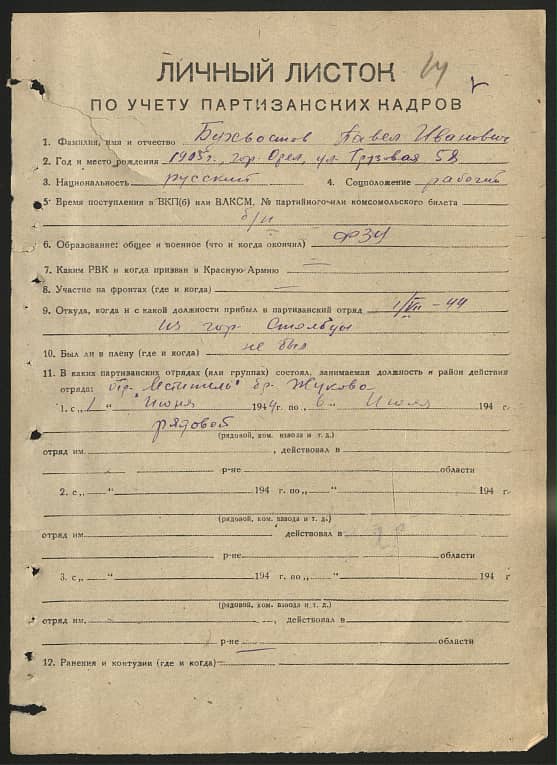 ЛИЧНЫЙ ЛИСТОК
ПО УЧЕТУ ПАРТИЗАНСКИХ КАДРОВ
1. Фамилия, имя и отчество Бухвостов Павел Иванович
2. Год и место рождения 1905г., гор. Орел, ул. Грузовая 58
3. Национальность русский 4. Соцположение рабочий
5. Время поступления в ВКП(б) или ВЛКСМ, № партийного или комсомольского билета
б/п
6. Образование: общее и военное (что и когда окончил) ФЗУ
7. Каким РВК и когда призван в Красную Армию —
8. Участие на фронтах (где и когда) —
9. Откуда, когда и с какой должности прибыл в партизанский отряд 1/VI-44
из гор. Столбцы
10. Был ли в плену (где и когда) не был
11. В каких партизанских отрядах (или группах) состоял, занимаемая должность и район действия
отряда: отр. "Мститель" бр. Жукова
1. с „1" Июня 1944 г. по „6" Июля 194 г.
рядовой
(рядовой, ком. взвода и т. д.)
отряд им. , действовал в
р-не области
2. с „ " 194 г. по „ " 194 г.
(рядовой, ком. взвода и т. д.)
отряд им. действовал в
р-не области
3. с „ " 194 г. по „ " 194 г
(рядовой, ком. взвода и т. д.)
отряд им. , действовал в
р-не области
12. Ранения и контузии (где и когда) —